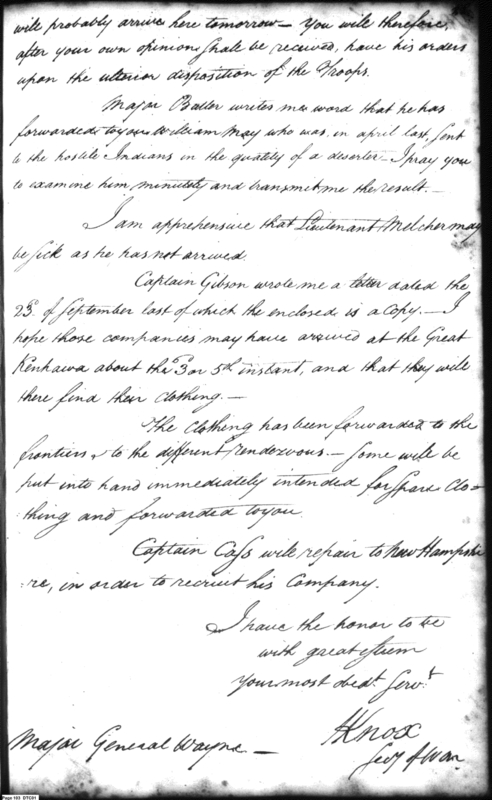 will probably arrive here tomorrow — You will therefore,
after your own opinion shall be received, have his orders
upon the ulterior disposition of the Troops.
Major Butler writes me word that he has
forwarded to you William May who was in april last sent
to the hostile Indians in the quality of a deserter — I pray you
to examine him minutely and transmit me the result. —
I am apprehensive that Lieutenant Melcher may
be sick as he has not arrived
Captain Gibson wrote me a letter dated the
23d. of September last of which the enclosed is a Copy. — I
hope those companies may have arrived at the Great
Kenhawa about the 3 or 5th instant, and that they will
there find their clothing. —
The clothing has been forwarded to the
frontiers & to the different rendezvous — Some will be
put into hand immediately intended for spare Clo=
thing and forwarded to you
Captain Cass will repair to New Hampshi
re, in order to recruit his Company.
I have the honor to be
with great esteem
Your most obedt. Servt.
HKnox
Secy of War
Major General Wayne —
Page 103 DTC01